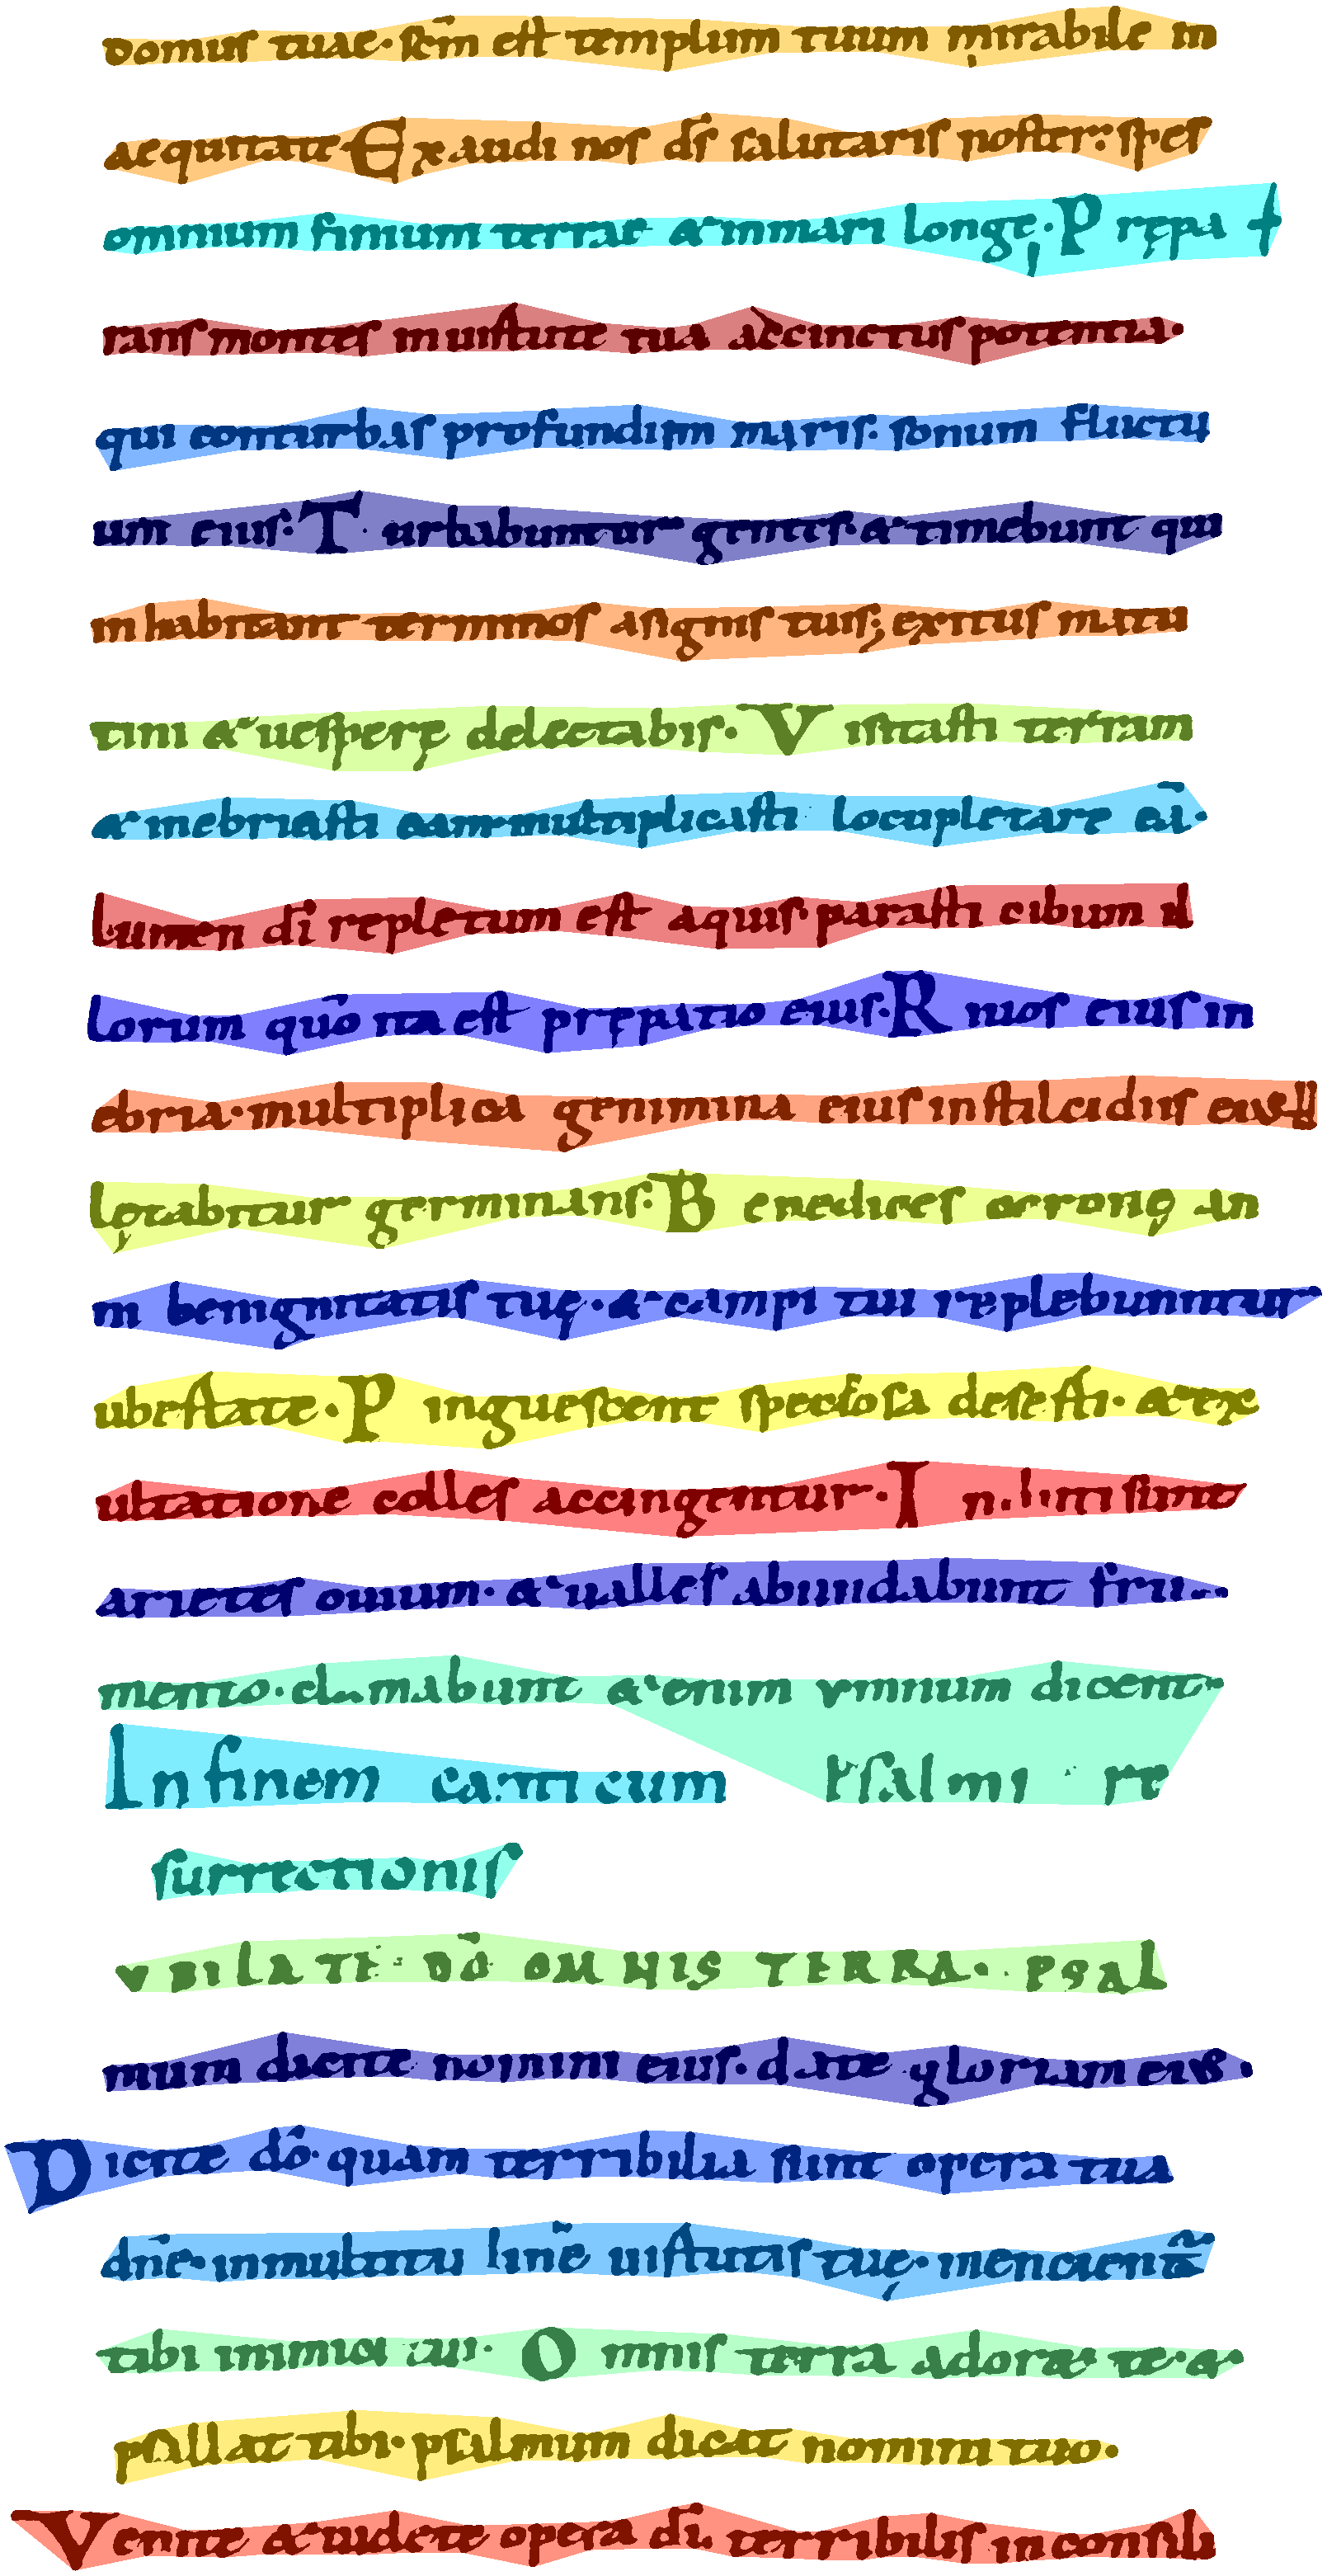 domus tuae· scm̄ est templum tuum mirabile in
aequitate Exaudi nos ds̄ salutaris noster: spes
omnium finium terrae & in mari longę· P rępa
rans montes in uirtute tua accinctus potentia·
qui conturbas profundum maris· sonum fluctu
um eius· T urbabuntur gentes· & timebunt qui
inhabitant terminos a signis tuis; exitus matu
tini & uesperę delectabis· V isitasti terram
& inebriasti eam multiplicasti locupletare eā·
lumen dī repletum est aquis· parasti cibum il
lorum quō ita est pręparatio eius· R iuos eius in
ebria· multiplica genimina eius in stilcidiis eius
lętabitur germinans: B enedices coronę an
ni benignitatis tuę· & campi tui replebuntur
ubertate· P inguescent speciosa deserti· & ex
ultatione colles accingentur· I nduti sunt
arietes ouium· & ualles abundabunt fru
mento· clamabunt & enim ymnum dicent·
In finem canticum Psalmi re
surrectionis
VBILATE DŌ OMNIS TERRA· PSAL
mum dicite nomini eius· date gloriam eius·
Dicite dō· quam terribilia sunt opera tua
dn̄e· in multitu uirtutis tuę· mencient
tibi inimici tui· O mnis terra ador& te· &
psallat tibi· psalmum dicat nomini tuo·
Venite & uidete opera dī· terribilis in consili